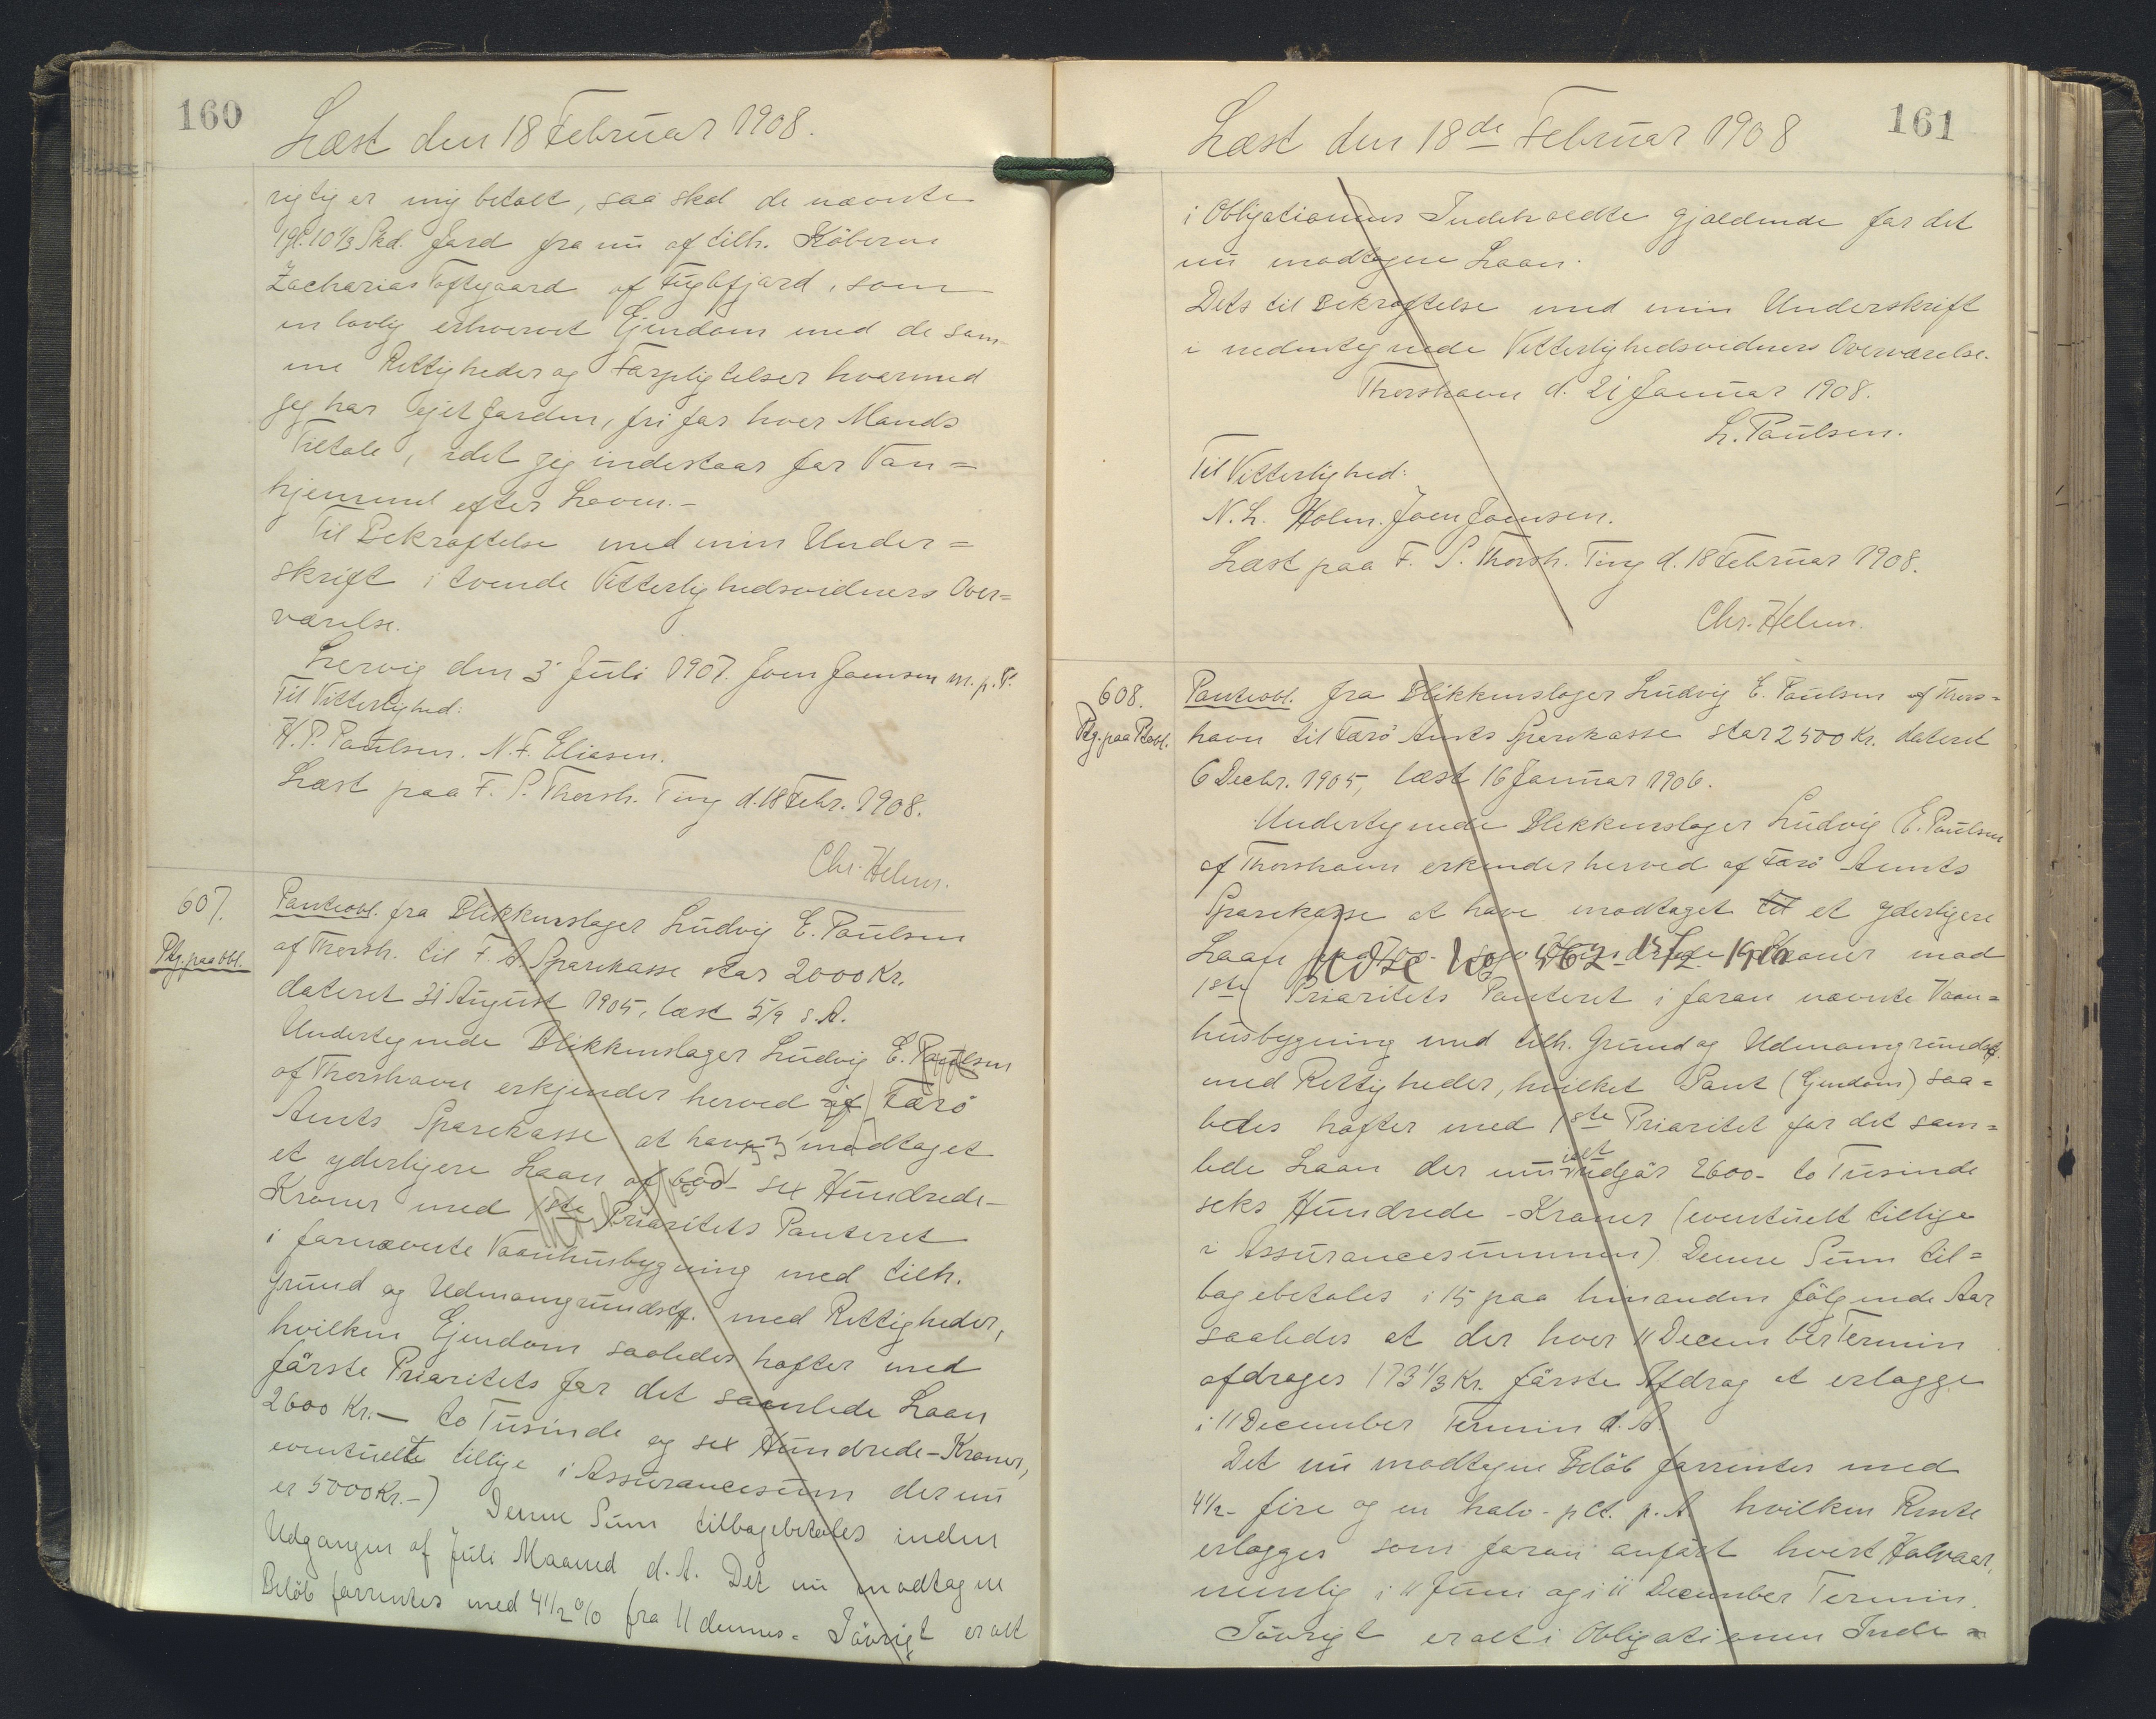 160
Læst den 18 Februar 1908.
rigtig er mig betalt, saa skal de nævnte
1 Gl. 10 1/3 Skd. Jord fra nu af tilh. Köberen
Zacharias Toftegaard af Fuglefjord, som
en lovlig erhvervet Ejendom med de sam-
me Rettigheder og Forpligtelser hvormed
jeg har ejet Jorden, fri for hver Mands
Tiltale, idet jeg indestaar for Van=
hjemmel efter Loven.-
Til Bekræftelse med min Under=
skrift i tvende Vitterlighedsvidners Over=
værelse.
Lervig den 3' Juli 1907. Joen Joensen m.p.P.
Til Vitterlighed:
H.P. Poulsen. N.F. Eliasen.
Læst paa F. S. Thorsh. Ting d. 18 Febr. 1908.
Chr. Helm.
607.
Ptg. paa Obl.
Panteobl. fra Blikkenslager Ludvig E. Poulsen
af Thorsh. til F. A. Sparekasse stor 2000 Kr.
dateret 31 August 1905, læst 5/9 s.A.
Undertegnede Blikkenslager Ludvig E. Poulsen
af Thorshavn erkjender herved af Færö
Amts Sparekasse at have modtaget
et yderligere Laan af 600 - sex Hundrede -
Kroner med 1ste Prioritets Panteret
i fornævnte Vaanhusbygning med tilh.
Grund og Udmarksgrundstk. med Rettigheder,
hvilken Ejendom saaledes hæfter med
förste Prioritets for det samlede Laan
2600 Kr. - to Tusinde og sex Hundrede - Kroner,
eventuelt tillige i Assurancesum der nu
er 5000 Kr. -) Denne Sum tilbagebetales inden
Udgangen af Juli Maaned d. A. Det nu modtagne
Belöb forrentes med 4 1/2 % fra 11 dennes. Iövrigt er alt
161
Læst den 18de Februar 1908
i Obligationens Indeholdte gjældende for det
nu modtagne Laan.
Dets til Bekræftelse med min Underskrift
i nedentegnede Vitterlighedsvidners Overværelse.
Thorshavn d. 21 Januar 1908.
L. Poulsen.
Til Vitterlighed:
N. L. Holm. Joen Joensen.
Læst paa F. S. Thorsh. Ting d. 18 Februar 1908.
Chr. Helm.
608.
Ptg. paa Pteobl.
Panteobl. fra Blikkenslager Ludvig E. Poulsen af Thors=
havn til Færö Amts Sparekasse stor 2500 Kr. dateret
6 Decbr. 1905, læst 16 Januar 1906.
Undertegnede Blikkenslager Ludvig E. Poulsen
af Thorshavn erkender herved af Færö Amts
Sparekasse at have modtaget til et yderligere
Laan Kroner mod
1ste Prioritets Panteret i foran nævnte Vaan=
husbygning med tilh. Grund og Udmarksgrundstk.
med Rettigheder, hvilket Pant (Ejendom) saa=
ledes hæfter med 1ste Prioritet for det sam=
lede Laan der nu ialt udgör 2600 - to Tusinde
seks Hundrede - Kroner (eventuelt tillige
i Assurancesummen) Denne Sum til=
bagebetales i 15 paa hinanden fölgende Aar
saaledes at der hver 11 December Termin
afdrages 173 1/3 Kr. förste Afdrag at erlægge
i 11 December Termin d. A.
Det nu modtagne Belöb forrentes med
4 1/2 - fire og en halv - pCt. p. A. hvilken Rente
erlægges som foran anfört hvert Halvaar,
nemlig i 11 Juni og i 11 December Termin.
Iövrigt er alt i Obligationen Inde=